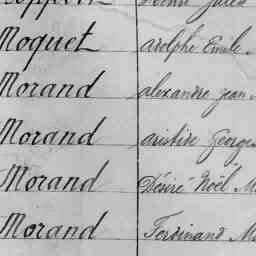 Moquet adolphe Emile
Morand alexandre Jean
Morand aristide George
Morand Désiré Noël M
Morand Ferdinand M